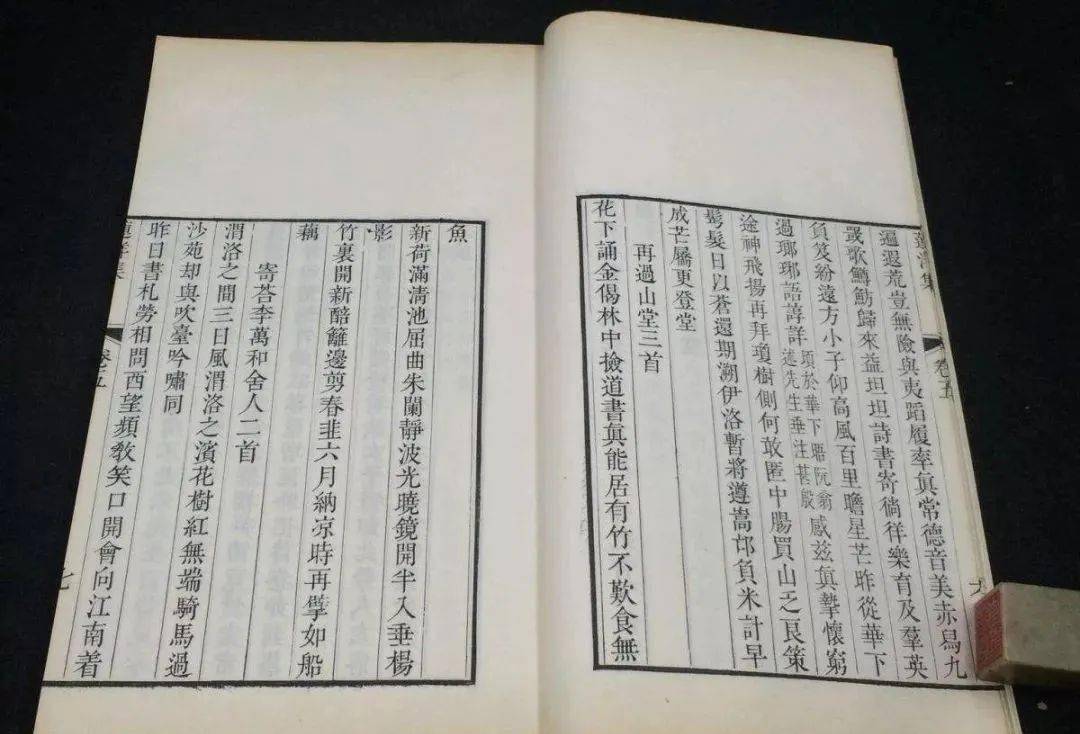 蓮洋集 卷五
遍遐荒豈無險與夷蹈履率眞常德音美赤舄九
罭歌鱒魴歸來益坦坦詩書寄徜徉樂育及羣英
負笈紛遠方小子仰高風百里瞻星芒昨從華下
過瑯琊語諄詳
頃於華下阮翁
述先生垂注甚殷
感茲眞摯懷窮
途神飛揚再拜瓊樹側何敢匿中腸買山乏良策
髩髮日以蒼還期溯伊洛暫將遵嵩邙負米計早
成芒屩更登堂
再過山堂三首
花下誦金偈林中撿道書眞能居有竹不歎食無
魚
新荷滿淸池屈曲朱闌靜波光曉鏡開半入垂楊
影
竹裏開新醅籬邊剪春韭六月納凉時再擘如船
藕
寄荅李萬和舍人二首
渭洛之間三日風渭洛之濱花樹紅無端騎馬過
沙苑却與吹臺吟嘯同
昨日書札勞相問西望頻敎笑口開會向江南着
蓮洋集 卷五 七